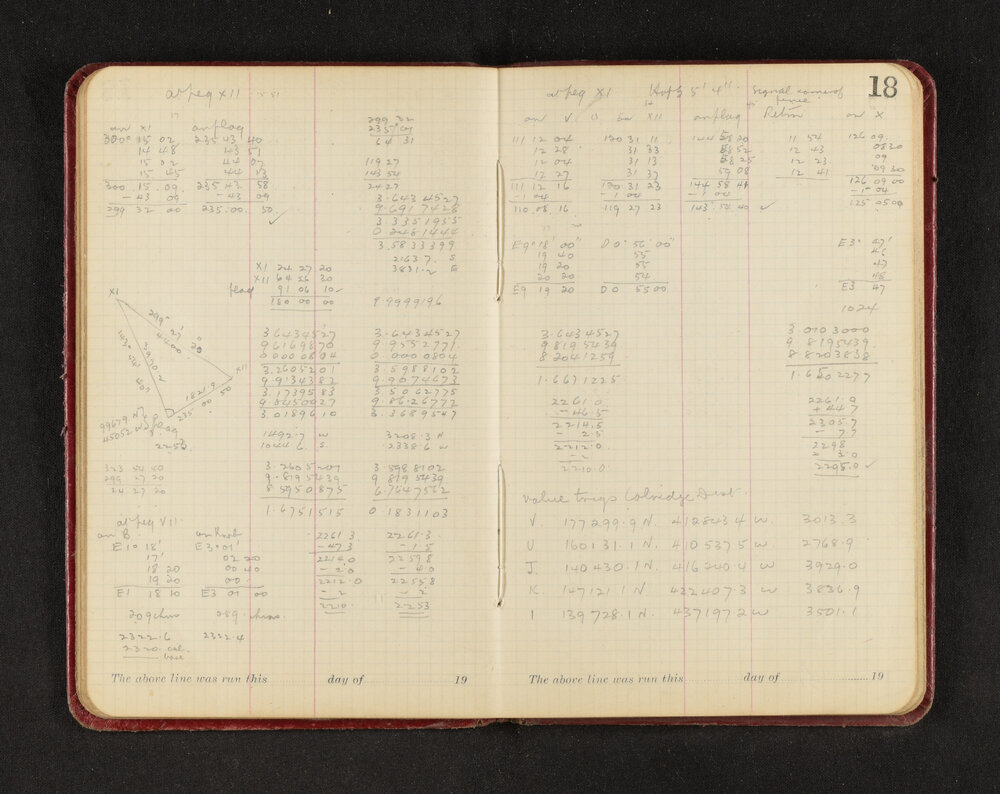 at peg XII
on XI on flag
300° 15 02 235 43 40
14 48 43 51
15 02 44 07
15 45 44 13
300. 15. 09. 235 43 58
- 43 09 - 43 09
299 32 00 235. 00. 50
299 32
235° 01
64 31
119 27
143 54
24 27
3.643 4527
9.6917428
3.3351955
0 2481444
3.5833399
2163.7. S
3831.2 E
XI 24 27 20
XII 64 26 30
flag 91 06 10
180 00 00
9.9999196
XI
299° 27' 20"
4400
143° 54' 40"
3930.2
XII
1821.9
235 00 50
99679 N
45052 W
flag
2256
3.6434527 3.6434527
9.6169870 9.9552771
0 0000804 0.0000804
3.2605201 3.5988102
9.9134382 9.9074673
3.1739583 3.5062775
9.8450027 9.8626772
3.0189610 3.3689547
1492.7 W 3208.3 N
1044.6 S 2338.6 W
323 54 50
299 27 20
24 27 20
3.2605201 3.5988102
9.8195439 9 8195439
8 5950875 6.7647562
1.6751515 0 1831103
at peg VII
on B. on Knob
E1° 18' E3° 01'
17' 02 20
18 20 00 40
19 20 00
E1 18 10 E3 01 00
2322.6 2322.4
2320. cal. base
2261 3 2261.3
- 47 3 - 1 5
2214.0 2259 8
- 2.0 - 4.0
2212.0 2255 8
- 2 - 2
2210. 2253
The above line was run this day of 19
18
at peg XI 5' 4" Signal corner of fence
on V on XII on flag Retrn on X
111 12 04 120 31 11 144 58 20 11 54 126 09.
12 28 31 33 58 52 12 43 08 30
12 04 31 13 58 25 12 23 09
12 27 31 37 59 08 12 41 09 30
111 12 16 120 31 23 144 58 44 126 09 00
- 1 04 - 1 04 - 1 04 - 1 04
110 08 16 119 27 23 143 54 40 125 05 00
E9° 18' 00" D0° 56' 00" E3° 47'
19 40 55 46
19 20 55 47
20 20 54 48
E9 19 20 D0 55 00 E3 47
1024
3.6434527 3.0103000
9 8195439 9 8195439
8 2041259 8 8203838
1.6671225 1.6502277
2261.0 2261.0
- 46.5 + 44.7
2214.5 2305.7
- 2.5 - 7.7
2212.0 2298
2210.0 2295.0
value trigs Colridge Dist.
V. 177299.9 N. 412843 4 W 3013.3
U 160131.1 N. 410537 5 W 2768.9
J. 140430.1 N. 416240.4 W 3929.0
K. 147121.1 N. 422407.3 W 3836.9
I 139728.1 N. 437197.2 W 3501.1
The above line was run this day of 19